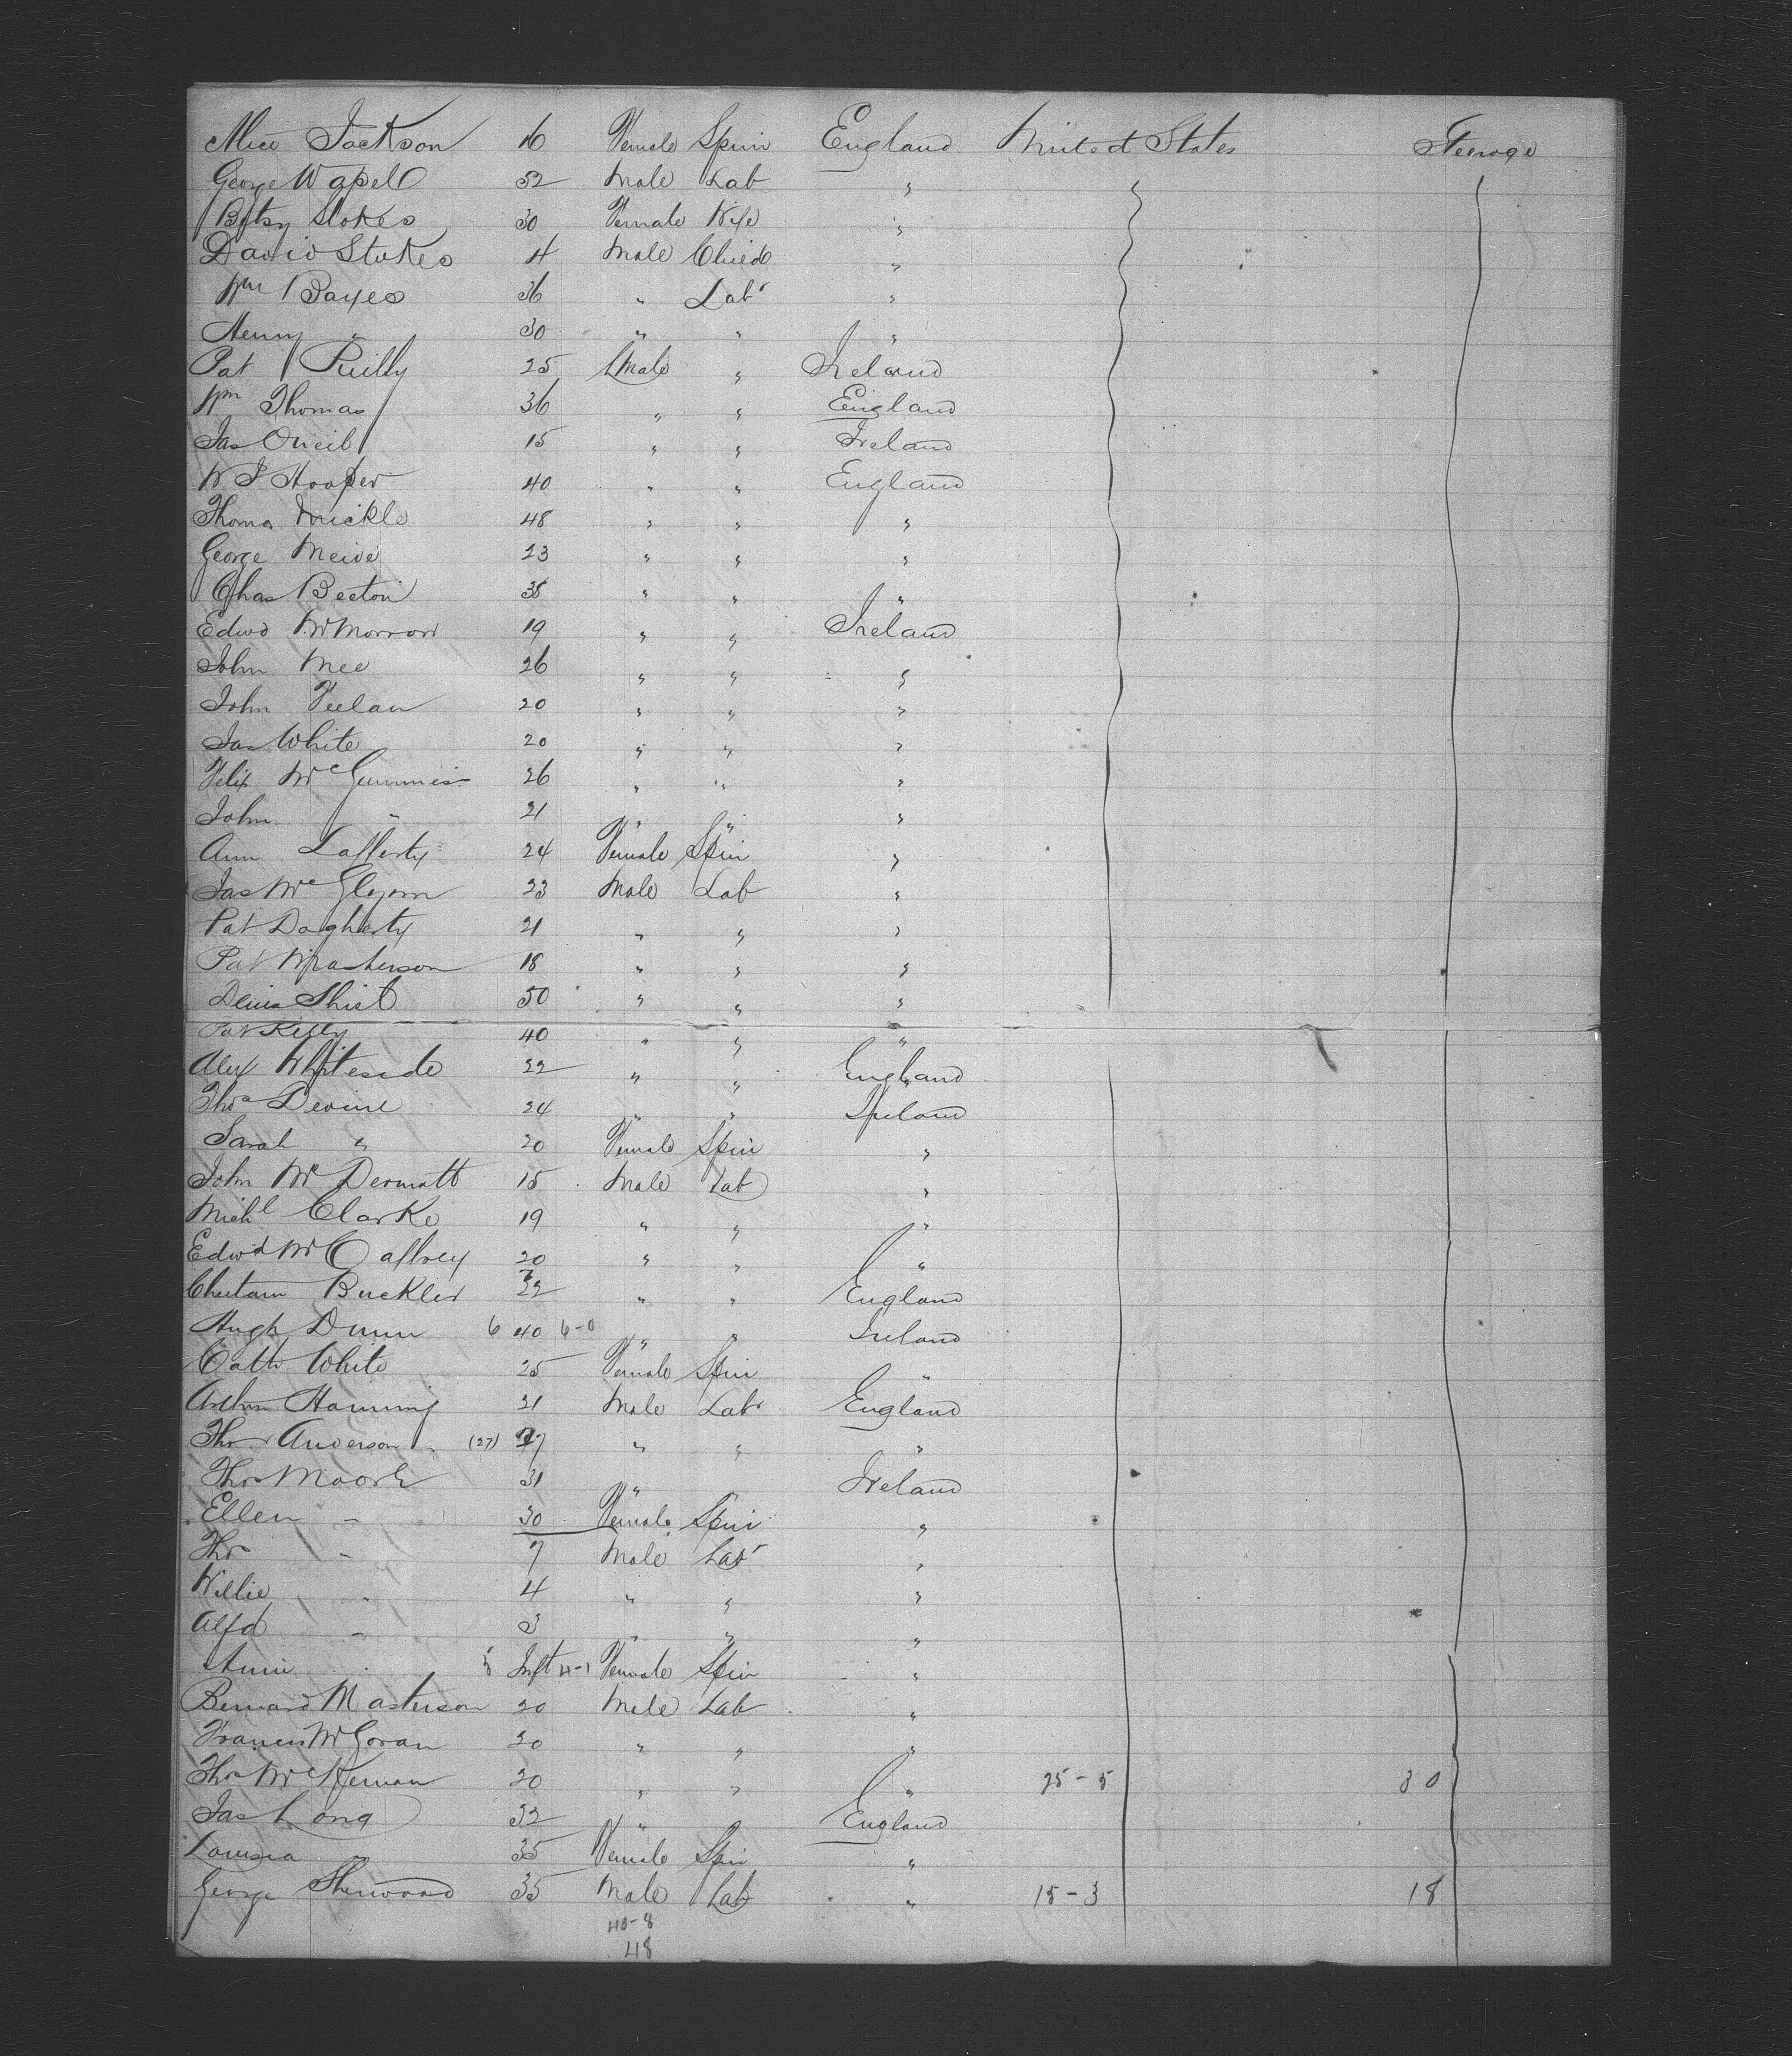 Alice Jackson 16 Female Spin England United States Steerage
George Wapel 52 Male Lab "
Betsy Stokes 30 Female Wife "
David Stokes 4 Male Child "
Wm Bayes 36 " Labr "
Henry " 30 " " "
Pat Reilly 25 Male " Ireland
Wm Thomas 36 " " England
Jas Oneil 15 " " Ireland
W J Hooper 40 " " England
Thomas Mickle 48 " " "
George 23 " " "
Chas Beeton 38 " " "
Edwd McMorrow 19 " " Ireland
John Mee 26 " " "
John Feelan 20 " " "
Jas White 20 " " "
Felix Mc 26 " " "
John " 21 " " "
Ann Lafferty 24 Female Spin "
Jas Mc Glynn 23 Male Lab "
Pat Dogherty 21 " " "
Pat Masterson 18 " " "
Denis 50 " " "
Pat Kelly 40 " " "
Alex Whiteside 22 " " England
Thos Devine 24 " " Ireland
Sarah " 20 Female Spin "
John Mc Dermott 15 Male Lab "
Michl Clarke 19 " " "
Edwd McCaffrey 20 " " "
Buckler 22 " " England
Hugh Dunn 6 40 6-0 " " Ireland
Cath White 25 Female Spin "
Arthur 21 Male Labr England
Thos Anderson (27) 27 " " "
Thos Moore 31 " " Ireland
Ellen " 30 Female Spin "
Thos " 7 Male Labr "
Willie " 4 " " "
Alfd " 3 " " "
Annie " 5 Inft 4-1 Female Spin "
Bernard Masterson 20 Male Lab "
Francis McGovan 20 " " "
Thos McKernan 20 " " " 25-5 30
Jas Long 32 " England
Louisa 35 Female Spin "
George Sherwood 35 Male Lab " 15-3 18
40-8
48